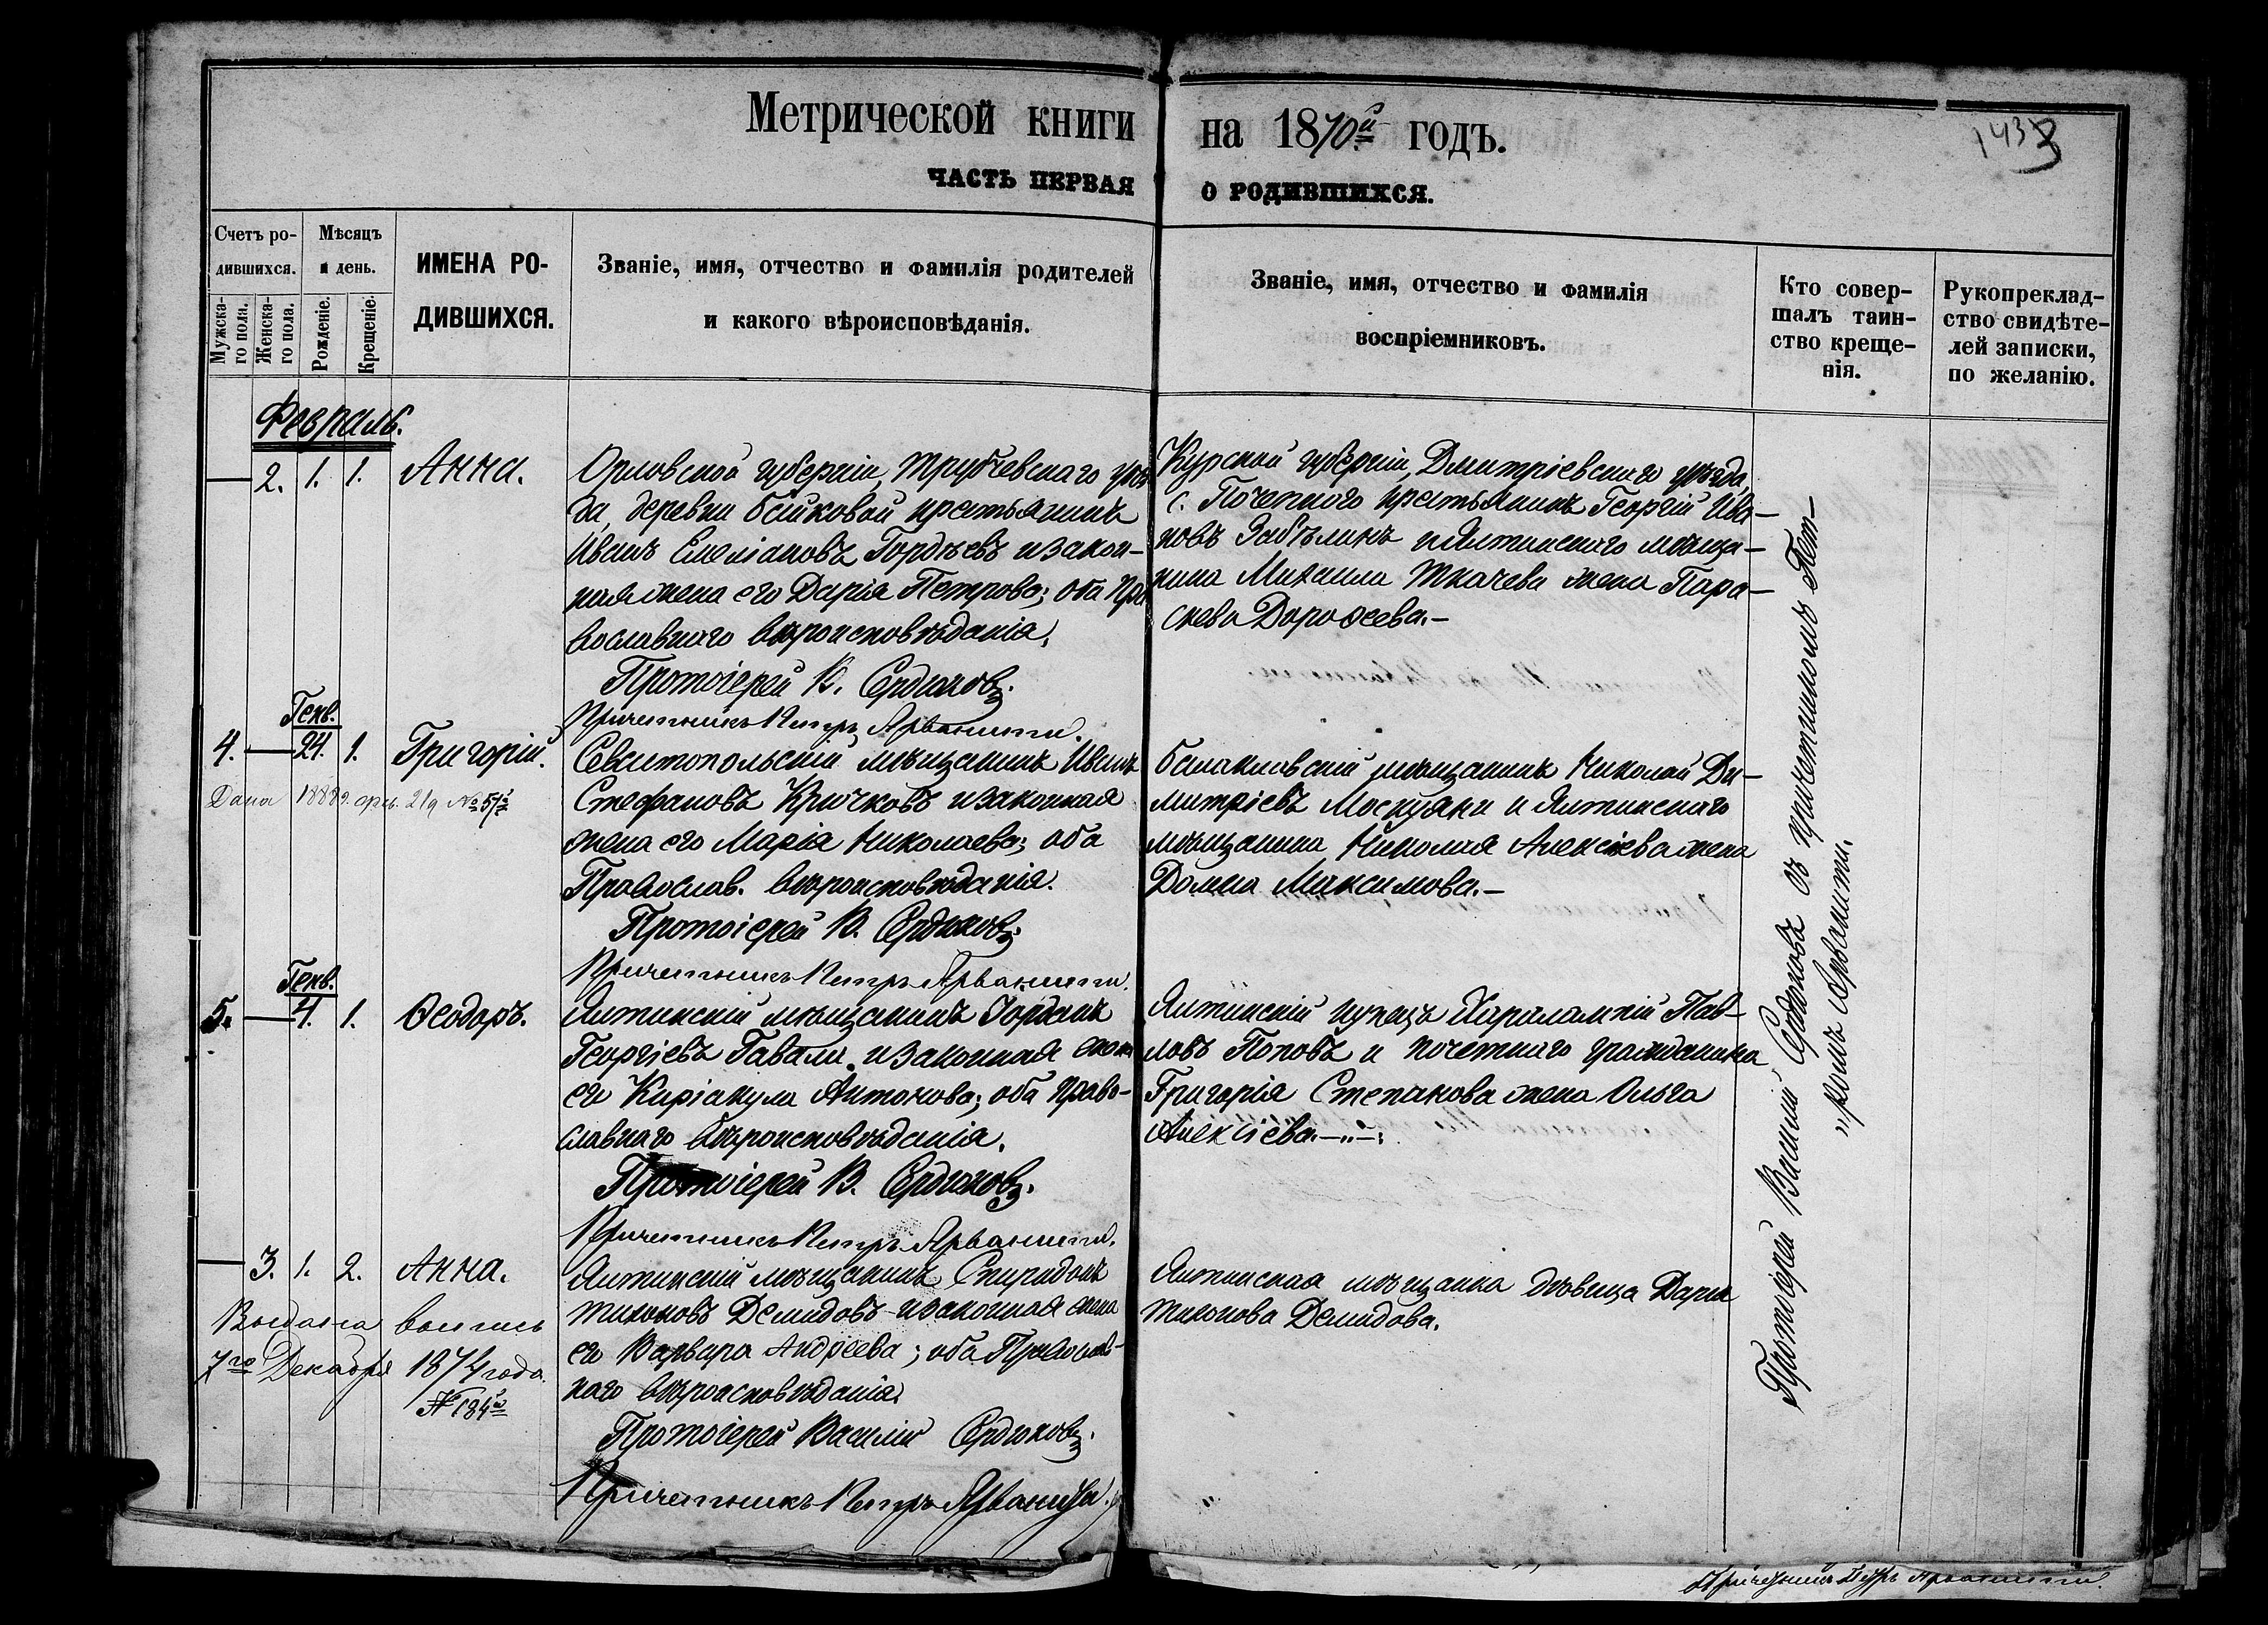 Метрической книги на 1870й годъ.
1433
ЧАСТЬ ПЕРВАЯ О РОДИВШИХСЯ.
Счетъ ро-
дившихся.
Мужска-
го пола.
Женска-
го пола.
Мѣсяцъ
и день.
Рожденіе.
Крещеніе.
ИМЕНА РО-
ДИВШИХСЯ.
Званіе, имя, отчество и фамилія родителей
и какого вѣроисповѣданія.
Званіе, имя, отчество и фамилія
воспріемниковъ.
Кто совер-
шалъ таин-
ство креще-
нія.
Рукоприклад-
ство свидѣте-
лей записки,
по желанію.
Февраль.
— 2. 1. 1. Анна.
Орловской губерніи, Трубчевскаго уѣз
да, деревни крестьянинъ
Иванъ Емеліановъ Гордѣевъ и закон-
ная жена его Дарія Петрова; оба Пра
вославнаго вѣроисповѣданія.
Протоіерей В. Сердюковъ.
Причетникъ Петръ Арванити.
Курской губерніи, Дмитріевскаго уѣзда,
с. крестьянинъ Георгій Ива-
новъ Забѣлинъ и Ялтинскаго мѣща-
нина Михаила Ткачева жена Пара-
скева Дороѳеева.—
Генв.
4. — 24. 1. Григорій.
Дана 1889. 219 № 57й
Севастопольскій мѣщанинъ Иванъ
Стефановъ Крючковъ и законная
жена его Марія Николаева; оба
Православ. вѣроисповѣданія.
Протоіерей В. Сердюковъ.
Причетникъ Петръ Арванити.
Балаклавскій мѣщанинъ Николай Ди-
митріевъ и Ялтинскаго
мѣщанина Николая Алексѣева жена
Домна Максимова.—
Генв.
5. — 4. 1. Ѳеодоръ.
Ялтинскій мѣщанинъ Іорданъ
Георгіевъ Гавали и законная жена
его Киріакула Антонова; оба Право-
славнаго вѣроисповѣданія.
Протоіерей В. Сердюковъ.
Причетникъ Петръ Арванити.
Ялтинскій купецъ Харалампій Пав-
ловъ Поповъ и почетнаго гражданина
Григорія Степанова жена Ольга
Алексіева.—„—:
— 3. 1. 2. Анна.
Выдана выпись
7го Декабря 1874 года.
№ 184й
Ялтинскій мѣщанинъ Спиридонъ
Тихоновъ Демидовъ и законная жена
его Варвара Андреева; оба Православ-
наго вѣроисповѣданія.
Протоіерей Василій Сердюковъ.
Причетникъ Петръ Арванити.
Ялтинская мѣщанка дѣвица Дарія
Тихонова Демидова.
Протоіерей Василій Сердюковъ съ причетникомъ Пет-
„ромъ Арванити.
Причетникъ Петръ Арванити.